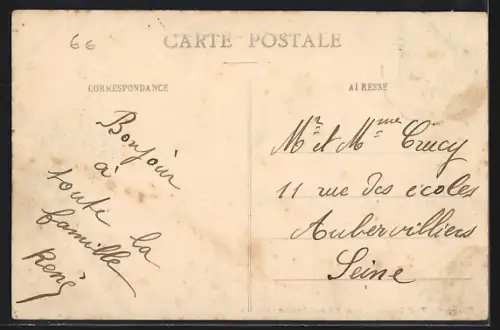 66
CARTE POSTALE
CORRESPONDANCE
ADRESSE
Bonjour
à
toute la
famille
René
Mr et Mme Crucy
11 rue des écoles
Aubervilliers
Seine